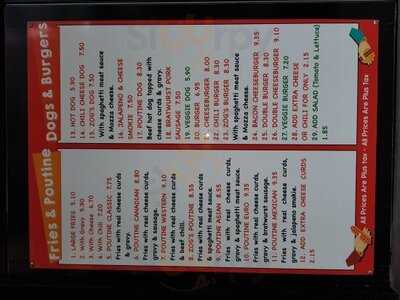 Fries & Poutine
1. LARGE FRIES 5.10
2. With Gravy 5.30
3. With Cheese 6.70
4. With Chili 7.20
5. POUTINE CLASSIC 7.75
Fries with real cheese curds
& gravy.
6. POUTINE CANADIAN 8.80
Fries with real cheese curds,
gravy & bacon.
7. POUTINE WESTERN 9.10
Fries with real cheese curds
& beef chili.
8. ZOG'S POUTINE 8.55
Fries with real cheese curds
& spaghetti meat sauce.
9. POUTINE ASIAN 8.55
Fries with real cheese curds,
gravy & spaghetti meat sauce.
10. POUTINE EURO 9.35
Fries with real cheese curds,
gravy & bratwurst sausage.
11. POUTINE MEXICAN 9.35
Fries with real cheese curds,
gravy & jalapeno smokie.
12. ADD EXTRA CHEESE CURDS
2.15
All Prices Are Plus Tax
Dogs & Burgers
13. HOT DOG 5.90
14. CHILI CHEESE DOG 7.50
15. ZOG'S DOG 7.50
With spaghetti meat sauce
& Mozza cheese.
16. JALAPENO & CHEESE
SMOKIE 7.50
17. POUTINE DOG 8.30
Beef hot dog topped with
cheese curds & gravy.
18. BRATWURST PORK
SAUSAGE 7.50
19. VEGGIE DOG 5.90
20. BURGER 6.95
21. CHEESEBURGER 8.00
22. CHILI BURGER 8.30
23. ZOG'S BURGER 8.30
With spaghetti meat sauce
& Mozza cheese.
24. BACON CHEESEBURGER 9.35
25. DOUBLE BURGER 8.30
26. DOUBLE CHEESEBURGER 9.10
27. VEGGIE BURGER 7.20
28. ADD EXTRA CHEESE
OR CHILI FOR ONLY 2.15
29. ADD SALAD (Tomato & Lettuce)
1.85
All Prices Are Plus Tax